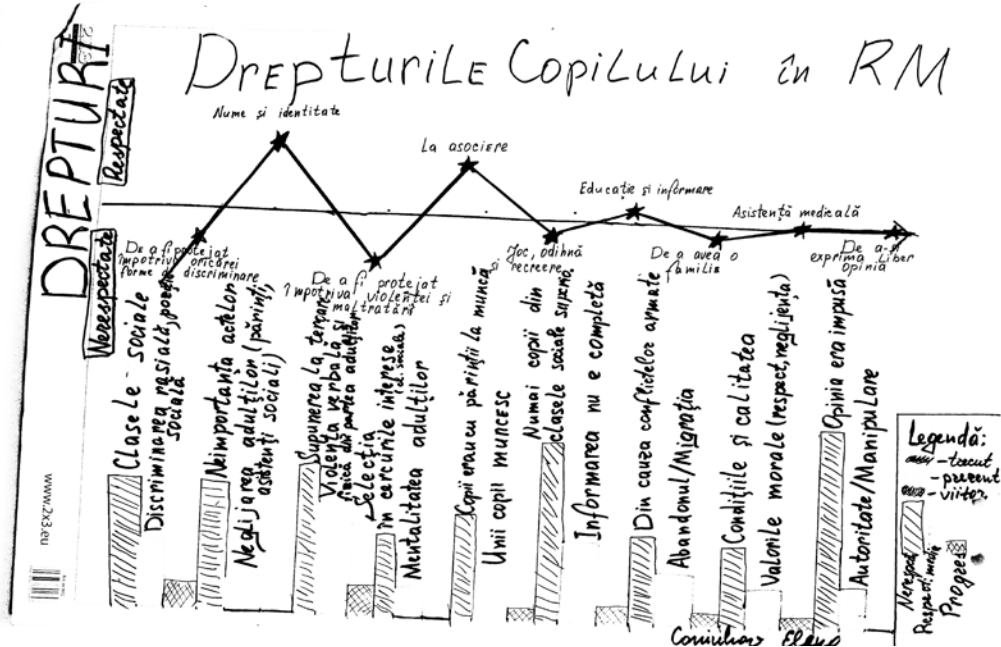 Drepturile Copilului în RM
DREPTURI
Respectate
Nerespectate
Nume și identitate
La asociere
Educație și informare
Asistență medicală
De a fi protejat
împotriva oricărei
forme de discriminare
De a fi protejat
împotriva violenței și
maltratării
Joc, odihnă
și recreere
De a avea o
familie
De a-și
exprima liber
opinia
Clasele - sociale
Discriminarea rasială,
socială
Neimportanța actelor
Neglijarea adulților (părinți,
asistenți sociali)
Supunerea la
Violența verbală și
fizică din partea adulților
Selecția
în cercurile interese
Mentalitatea adulților
Copii erau cu părinții la muncă
Unii copii muncesc
Numai copii din
clasele sociale
Informarea nu e completă
Din cauza conflictelor armate
Abandonul/Migrația
Condițiile și calitatea
Valorile morale (respect, neglijența)
Opinia era impusă
Autoritate/Manipulare
Legendă:
- trecut
- prezent
- viitor
Nerespect
Respect
Progres
www.2x3.eu
Elena